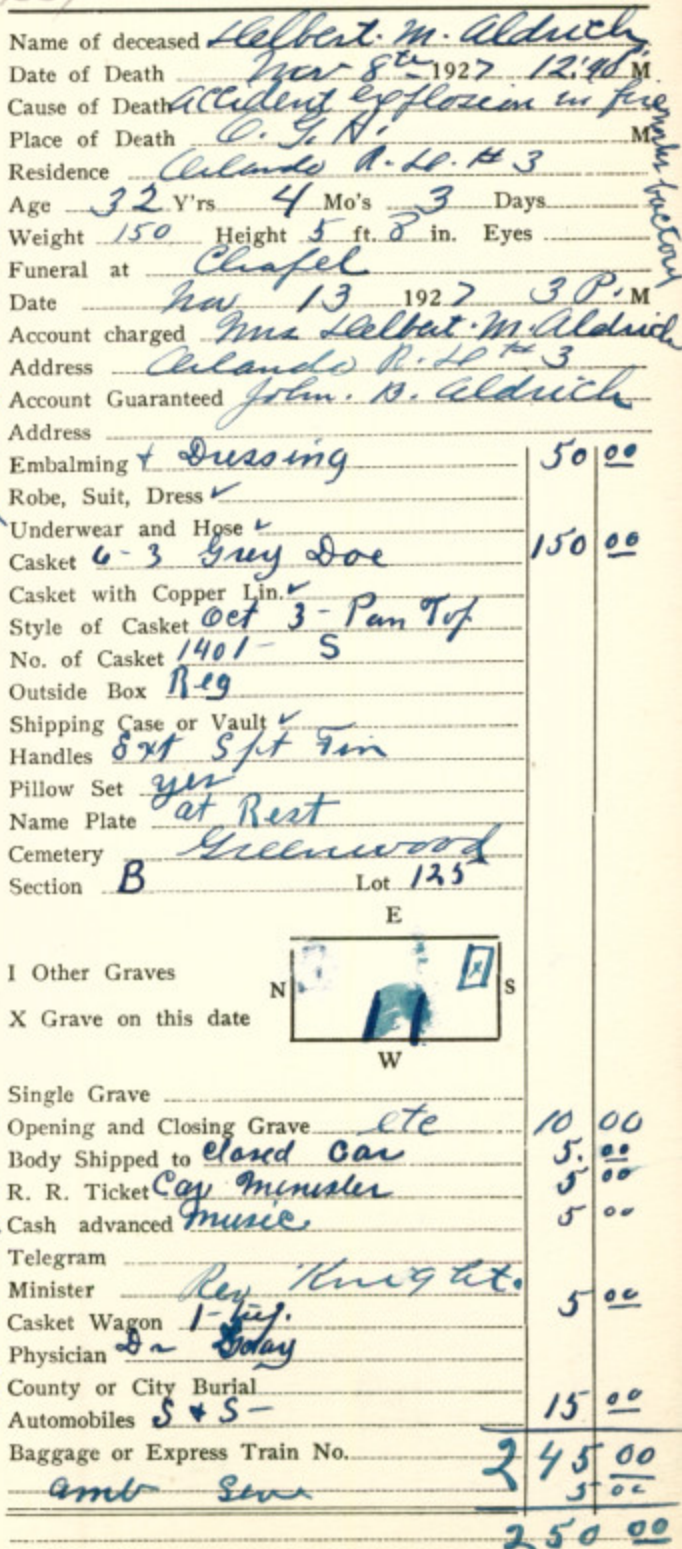 Name of deceased Delbert. M. Aldrich
Date of Death Nov 8th 1927 12:40 P. M
Cause of Death Accident explosion in fireworks factory
Place of Death O. G. H. M
Residence Orlando R. H. # 3
Age 32 Y'rs 4 Mo's 3 Days
Weight 150 Height 5 ft. 8 in. Eyes
Funeral at Chapel
Date Nov 13 1927 3 P. M
Account charged Mrs Delbert. M. Aldrich
Address Orlando R. H # 3
Account Guaranteed John. B. Aldrich
Address
Embalming + Dressing 50 00
Robe, Suit, Dress ✓
Underwear and Hose ✓
Casket 6-3 Grey Doe 150 00
Casket with Copper Lin. ✓
Style of Casket Oct 3 - Pan Top
No. of Casket 1401 - S
Outside Box Reg
Shipping Case or Vault ✓
Handles Ext
Pillow Set yes
Name Plate at Rest
Cemetery Greenwood
Section B Lot 125
E
I Other Graves
N X S
X Grave on this date
W
Single Grave
Opening and Closing Grave etc 10 00
Body Shipped to Closed Car 5. 00
R. R. Ticket Car Minister 5 00
Cash advanced Music 5 00
Telegram
Minister Rev Knight. 5 00
Casket Wagon
Physician Dr
County or City Burial
Automobiles S + S - 15 00
Baggage or Express Train No. 245 00
Amb Serv 5 00
250 00